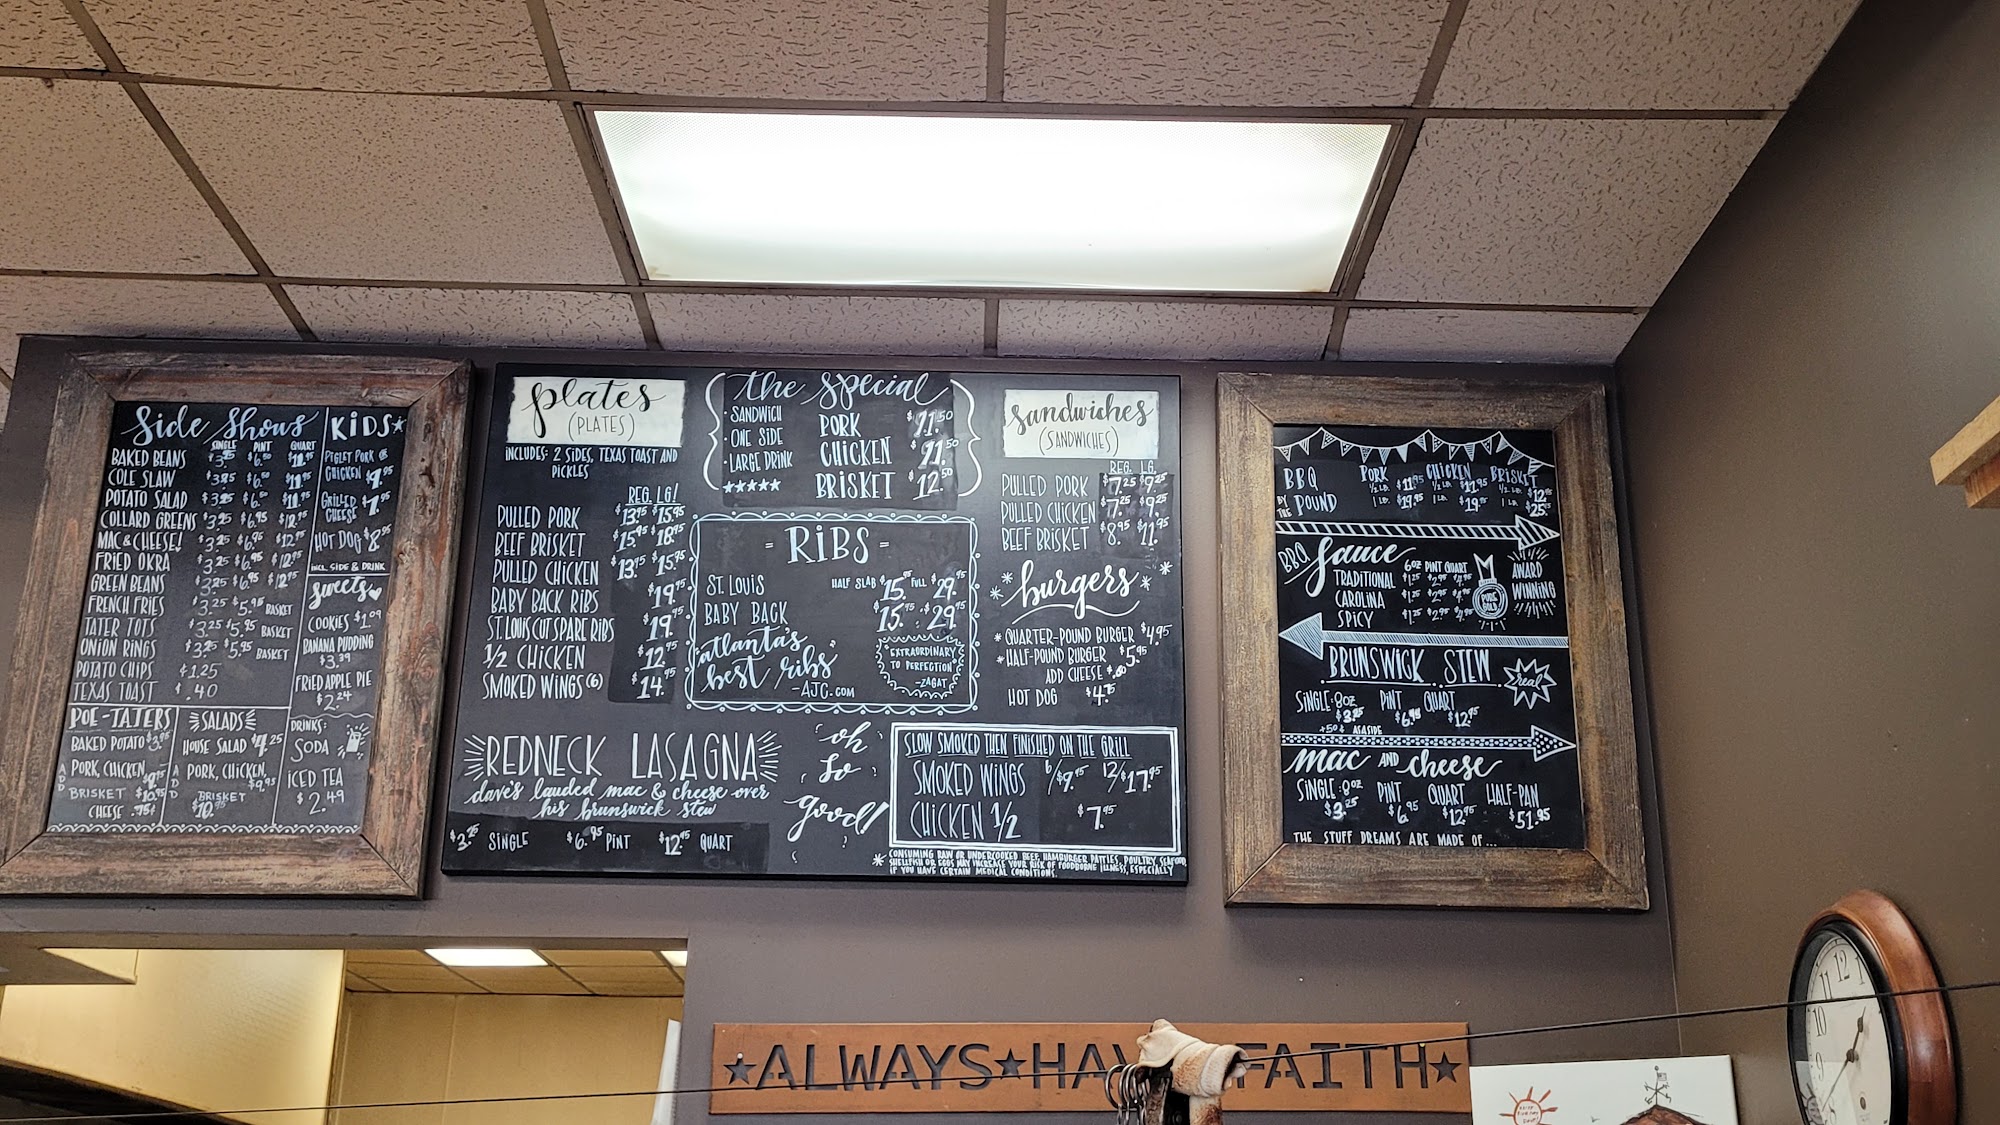 Side Shows
SINGLE PINT QUART
BAKED BEANS $3.25 $6.50 $11.95
COLE SLAW $3.25 $6.50 $11.95
POTATO SALAD $3.25 $6.50 $11.95
COLLARD GREENS $3.25 $6.95 $12.95
MAC & CHEESE! $3.25 $6.95 $12.95
FRIED OKRA $3.25 $6.95 $12.95
GREEN BEANS $3.25 $6.95 $12.95
FRENCH FRIES $3.25 $5.95 BASKET
TATER TOTS $3.25 $5.95 BASKET
ONION RINGS $3.25 $5.95 BASKET
POTATO CHIPS $1.25
TEXAS TOAST $.40
POE-TATERS
BAKED POTATO $3.95
ADD
PORK, CHICKEN $9.95
BRISKET $10.95
CHEESE .75¢
SALADS
HOUSE SALAD $4.25
ADD
PORK, CHICKEN, $9.95
BRISKET $10.95
KIDS
PIGLET PORK OR
CHICKEN $7.95
GRILLED
CHEESE $7.95
HOT DOG $8.95
INCL. SIDE & DRINK
sweets
COOKIES $1.09
BANANA PUDDING
$3.39
FRIED APPLE PIE
$2.24
DRINKS:
SODA
ICED TEA
$2.49
plates
(PLATES)
INCLUDES: 2 SIDES, TEXAS TOAST AND
PICKLES
REG. LG!
PULLED PORK $13.95 $15.95
BEEF BRISKET $15.95 $18.95
PULLED CHICKEN $13.95 $15.95
BABY BACK RIBS $19.95
ST. LOUIS CUT SPARE RIBS $19.95
1/2 CHICKEN $12.95
SMOKED WINGS (6) $14.95
the special
· SANDWICH
· ONE SIDE
· LARGE DRINK
PORK $11.50
CHICKEN $11.50
BRISKET $12.50
- RIBS -
ST. LOUIS HALF SLAB $15.95 FULL $29.95
BABY BACK $15.95 $29.95
atlanta's
best ribs
- AJC.COM
"EXTRAORDINARY
TO PERFECTION"
-ZAGAT
sandwiches
(SANDWICHES)
REG. LG.
PULLED PORK $7.25 $9.25
PULLED CHICKEN $7.25 $9.25
BEEF BRISKET $8.95 $11.95
burgers
* QUARTER-POUND BURGER $4.95
* HALF-POUND BURGER $5.95
ADD CHEESE $.60
HOT DOG $4.75
REDNECK LASAGNA
dave's lauded mac & cheese over
his brunswick stew
$3.25 SINGLE $6.95 PINT $12.95 QUART
oh
so
good!
SLOW SMOKED THEN FINISHED ON THE GRILL
SMOKED WINGS 6/$9.95 12/$17.95
CHICKEN 1/2 $7.95
* CONSUMING RAW OR UNDERCOOKED BEEF, HAMBURGER PATTIES, POULTRY, SEAFOOD,
SHELLFISH OR EGGS MAY INCREASE YOUR RISK OF FOODBORNE ILLNESS, ESPECIALLY
IF YOU HAVE CERTAIN MEDICAL CONDITIONS.
BBQ
BY THE POUND
PORK CHICKEN BRISKET
1/2 LB. $11.95 1/2 LB. $11.95 1/2 LB. $12.95
1 LB. $19.95 1 LB. $19.95 1 LB. $25.95
BBQ Sauce
6OZ PINT QUART
TRADITIONAL $1.25 $2.95 $4.95
CAROLINA $1.25 $2.95 $4.95
SPICY $1.25 $2.95 $4.95
PORK
GOLD
AWARD
WINNING
BRUNSWICK STEW
real
SINGLE: 8OZ PINT QUART
$3.25 $6.95 $12.95
+50¢ AS A SIDE
mac AND cheese
SINGLE: 8OZ PINT QUART HALF-PAN
$3.25 $6.95 $12.95 $51.95
THE STUFF DREAMS ARE MADE OF...
ALWAYS HAV FAITH
11 12
10
9
8
1